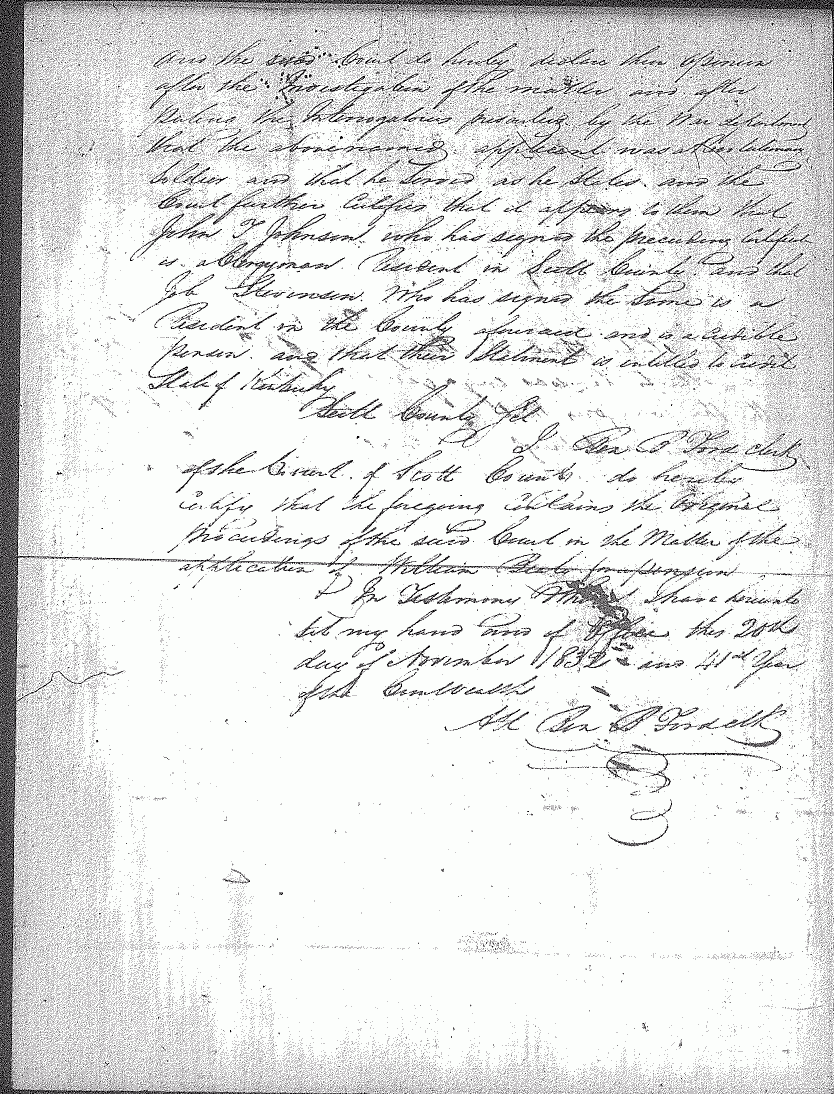 And the said Court do hereby declare their opinion
after the investigation of the matter and after
puting the Interrogatories prescribed by the War department
that the above named applicant was a Revolutionary
Soldier and that he Served as he States and the
Court further Certifies that it appears to them that
John T Johnson who has signed the preceeding Certificate
is a Clergyman Resident in Scott County and that
Job Stevenson Who has signed the Same is a
Resident in the County aforesaid and is a credible
person and that their Statement is entitled to credit
State of Kentucky
Scott County Sct
I Ben B Ford clerk
of the Court of Scott County do hereby
certify that the foregoing contains the Original
proceedings of the said Court in the Matter of the
application of William for pension
In Testimony Whereof I have hereunto
set my hand and of Office this 20th
day of November 1832 and 41st Year
of the Comlwealth
Att Ben B. Ford clk